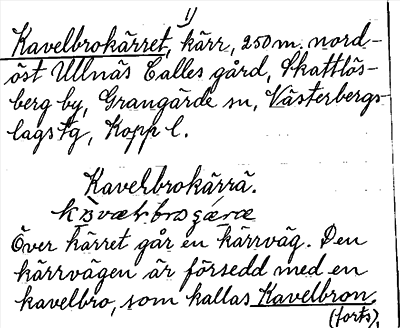 1)
Kavelbrokärret, kärr, 250 m. nord-
öst Ullnäs Calles gård, Skattlös-
berg by, Grangärde sn, Västerbergs-
lags tg, Kopp l.
Kavelbrokärrä.
Över kärret går en kärrväg. Den
kärrvägen är försedd med en
kavelbro, som kallas Kavelbron.
(forts).